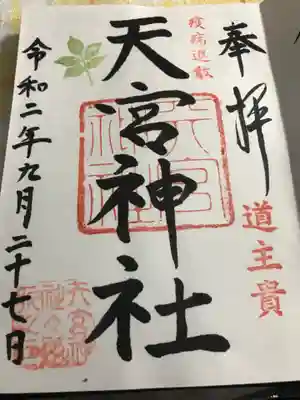 奉拝
道主貴
疫病退散
天宮神社
天宮神社
令和二年九月二十七日